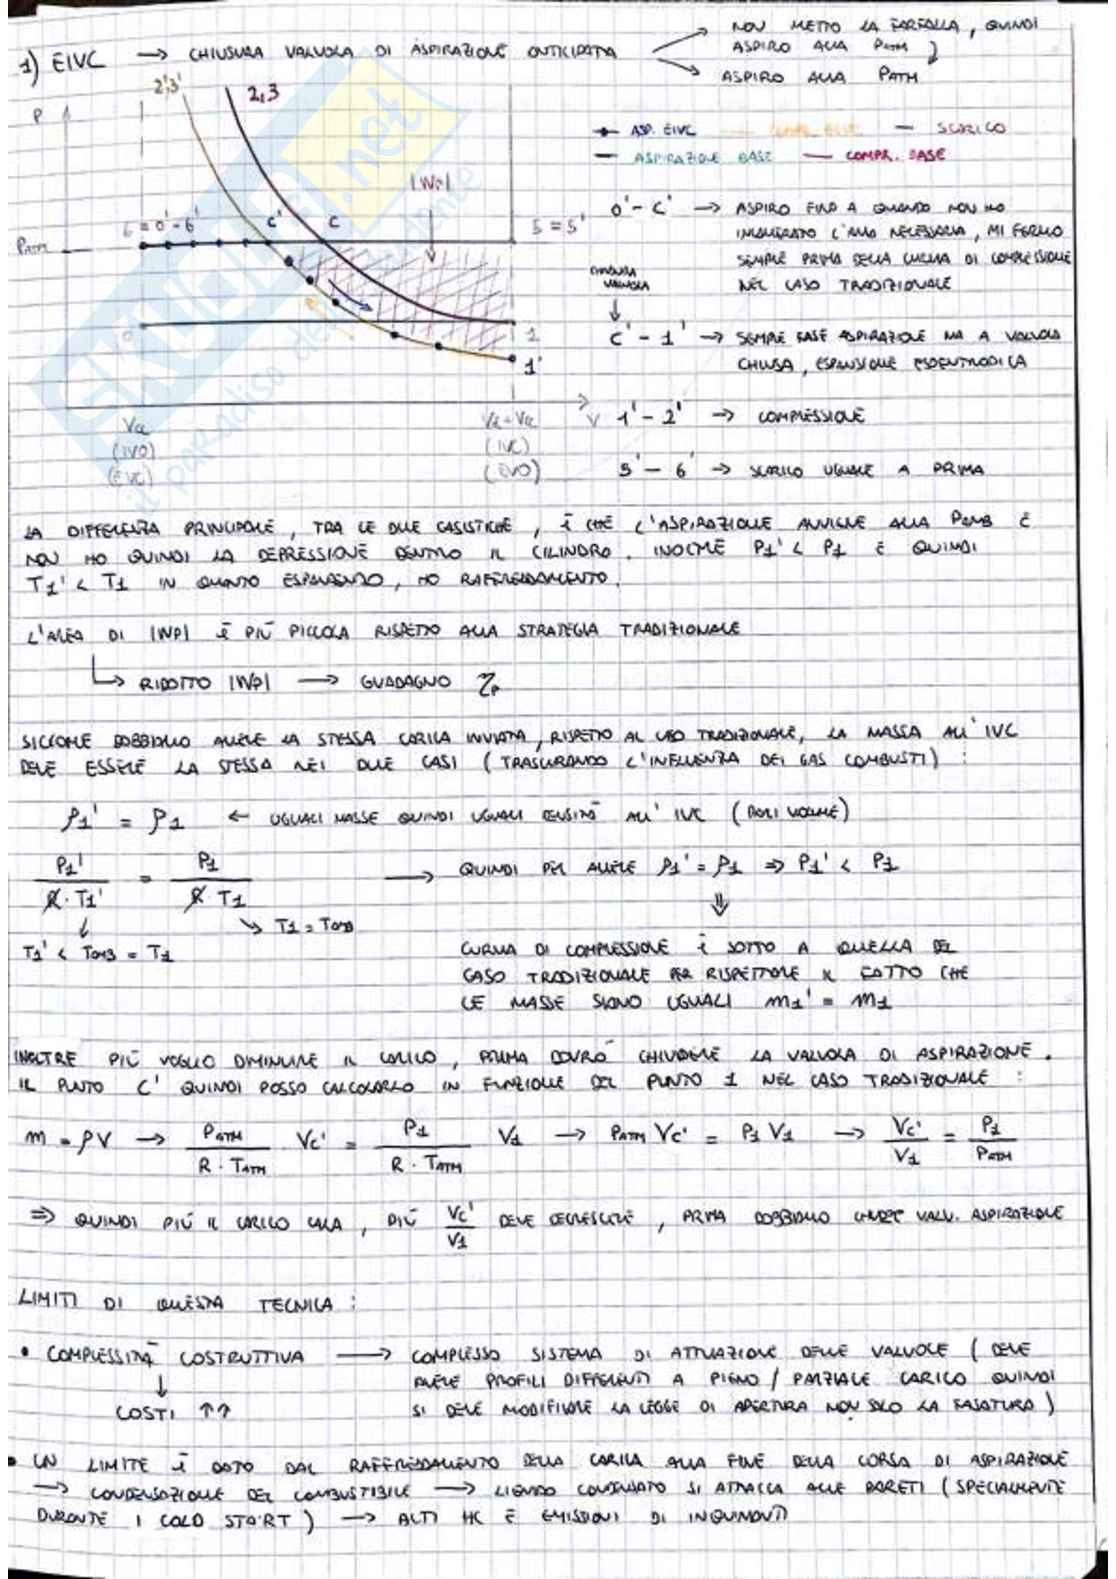 1) EIVC → CHIUSURA VALVOLA DI ASPIRAZIONE ANTICIPATA
NON METTO LA FARFALLA, QUINDI
ASPIRO ALLA PATM
ASPIRO ALLA PATM
2'3' 2,3
P
ASP. EIVC COMPR. EIVC SCARICO
ASPIRAZIONE BASE COMPR. BASE
|WP|
6=0'-6' C' C 5=5'
PATM
0 1
1'
Vcc
(IVO)
(EVC)
Vd+Vcc
(IVC)
(EVO)
V
0'-C' → ASPIRO FINO A QUANDO NON HO
INGLOBATO L'ARIA NECESSARIA, MI FERMO
SEMPRE PRIMA DELLA CURVA DI COMPRESSIONE
NEL CASO TRADIZIONALE
CHIUSURA
VALVOLA
↓
C'-1' → SEMPRE FASE ASPIRAZIONE MA A VALVOLA
CHIUSA, ESPANSIONE ISOENTROPICA
1'-2' → COMPRESSIONE
5'-6' → SCARICO UGUALE A PRIMA
LA DIFFERENZA PRINCIPALE, TRA LE DUE CASISTICHE, È CHE L'ASPIRAZIONE AVVIENE ALLA PAMB E
NON HO QUINDI LA DEPRESSIONE DENTRO IL CILINDRO. INOLTRE P1' < P1 E QUINDI
T1' < T1 IN QUANTO ESPANDENDO, HO RAFFREDDAMENTO.
L'AREA DI |WP| È PIÙ PICCOLA RISPETTO ALLA STRATEGIA TRADIZIONALE
→ RIDOTTO |WP| → GUADAGNO ηP
SICCOME DOBBIAMO AVERE LA STESSA CARICA INVIATA, RISPETTO AL CASO TRADIZIONALE, LA MASSA ALL'IVC
DEVE ESSERE LA STESSA NEI DUE CASI (TRASCURANDO L'INFLUENZA DEI GAS COMBUSTI):
ρ1' = ρ1 ← UGUALI MASSE QUINDI UGUALI DENSITÀ ALL'IVC (PARI VOLUME)
P1' / R·T1' = P1 / R·T1 → QUINDI PER AVERE ρ1' = ρ1 ⇒ P1' < P1
↓ ↘ T1 = TAMB ⇓
T1' < TAMB = T1
CURVA DI COMPRESSIONE È SOTTO A QUELLA DEL
CASO TRADIZIONALE PER RISPETTARE IL FATTO CHE
LE MASSE SIANO UGUALI m1' = m1
INOLTRE PIÙ VOGLIO DIMINUIRE IL CARICO, PRIMA DOVRÒ CHIUDERE LA VALVOLA DI ASPIRAZIONE.
IL PUNTO C' QUINDI POSSO CALCOLARLO IN FUNZIONE DEL PUNTO 1 NEL CASO TRADIZIONALE:
m = ρV → PATM / R·TATM VC' = P1 / R·TATM V1 → PATM VC' = P1 V1 → VC' / V1 = P1 / PATM
⇒ QUINDI PIÙ IL CARICO CALA, PIÙ VC' / V1 DEVE DECRESCERE, PRIMA DOBBIAMO CHIUDERE VALV. ASPIRAZIONE
LIMITI DI QUESTA TECNICA:
• COMPLESSITÀ COSTRUTTIVA → COMPLESSO SISTEMA DI ATTUAZIONE DELLE VALVOLE (DEVE
AVERE PROFILI DIFFERENTI A PIENO / PARZIALE CARICO QUINDI
SI DEVE MODIFICARE LA LEGGE DI APERTURA NON SOLO LA FASATURA)
↓
COSTI ↑↑
• UN LIMITE È DATO DAL RAFFREDDAMENTO DELLA CARICA ALLA FINE DELLA CORSA DI ASPIRAZIONE
→ CONDENSAZIONE DEL COMBUSTIBILE → LIQUIDO CONDENSATO SI ATTACCA ALLE PARETI (SPECIALMENTE
DURANTE I COLD START) → ALTI HC E EMISSIONI DI INQUINANTI
SKUOLA.net
il paradiso dello studente